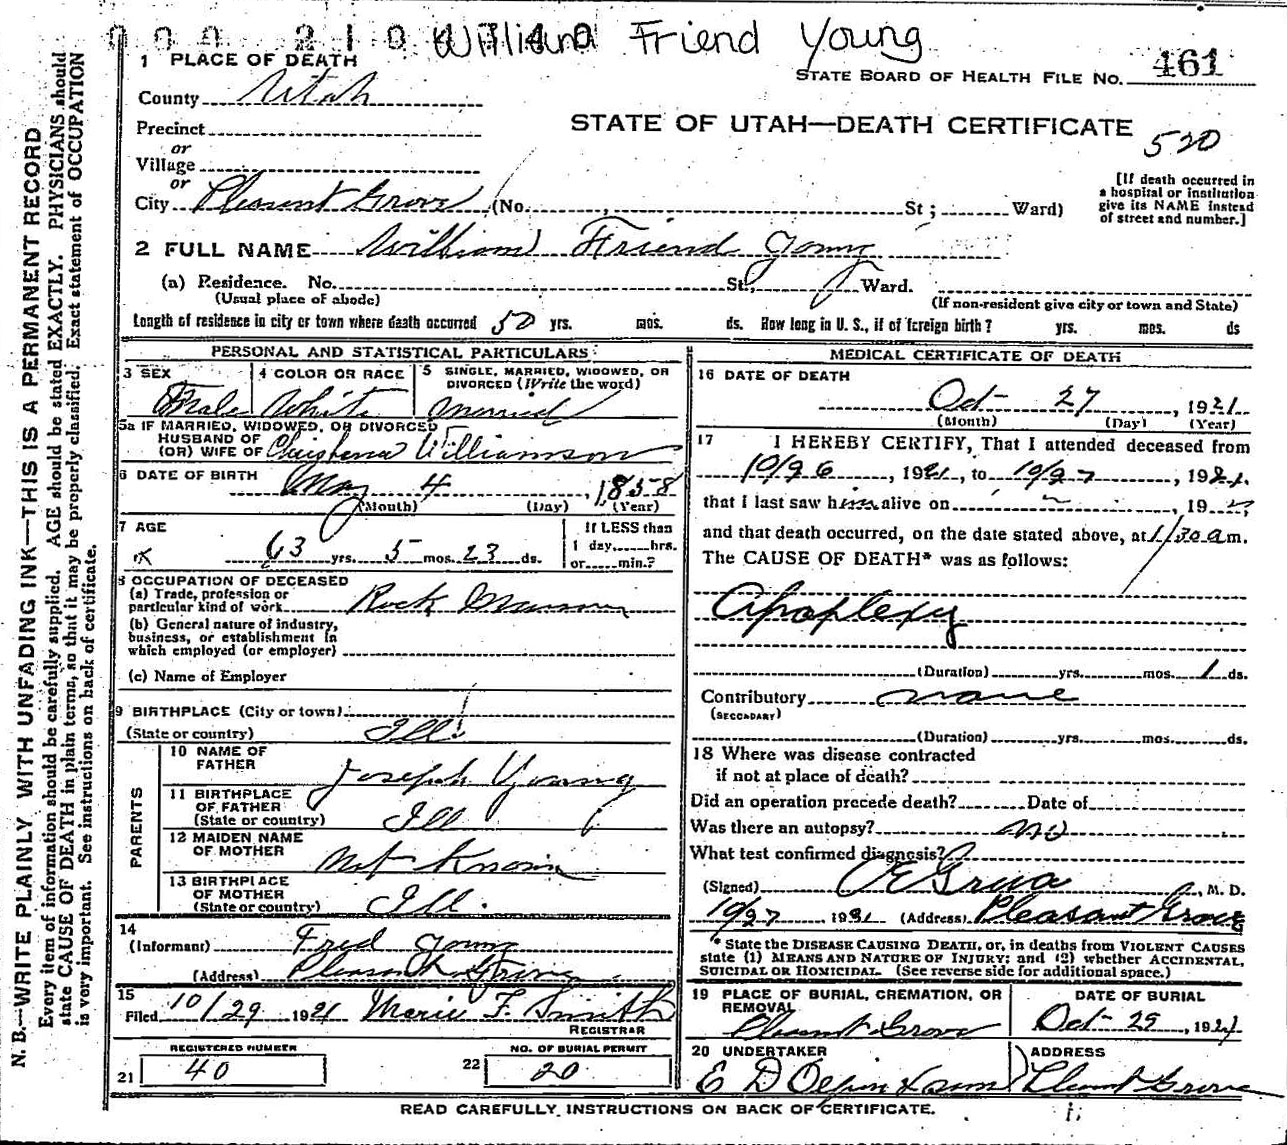 William Friend Young
1 PLACE OF DEATH
STATE BOARD OF HEALTH FILE NO. 461
County Utah
STATE OF UTAH—DEATH CERTIFICATE 520
Precinct
or
Village
or
City Pleasant Grove (No. St; Ward)
[If death occurred in a hospital or institution give its NAME instead of street and number.]
2 FULL NAME William Friend Young
(a) Residence. No. St., Ward.
(Usual place of abode) (If non-resident give city or town and State)
Length of residence in city or town where death occurred 50 yrs. mos. ds. How long in U. S., if of foreign birth? yrs. mos. ds
PERSONAL AND STATISTICAL PARTICULARS
3 SEX Male
4 COLOR OR RACE White
5 SINGLE, MARRIED, WIDOWED, OR DIVORCED (Write the word) Married
5a IF MARRIED, WIDOWED, OR DIVORCED
HUSBAND OF
(OR) WIFE OF Christena Williamson
6 DATE OF BIRTH May 4, 1858
(Month) (Day) (Year)
7 AGE 63 yrs. 5 mos. 23 ds.
If LESS than
1 day, hrs.
or min.?
8 OCCUPATION OF DECEASED
(a) Trade, profession or
particular kind of work Rock Mason
(b) General nature of industry,
business, or establishment in
which employed (or employer)
(c) Name of Employer
9 BIRTHPLACE (City or town)
(State or country) Ill
PARENTS
10 NAME OF FATHER Joseph Young
11 BIRTHPLACE OF FATHER (State or country) Ill
12 MAIDEN NAME OF MOTHER Not Known
13 BIRTHPLACE OF MOTHER (State or country) Ill.
14
(Informant) Fred Young
(Address) Pleasant Grove
15
Filed 10/29 1921 Marie F. Smith
REGISTRAR
REGISTERED NUMBER
21 40
NO. OF BURIAL PERMIT
22 20
MEDICAL CERTIFICATE OF DEATH
16 DATE OF DEATH
Oct 27, 1921
(Month) (Day) (Year)
17 I HEREBY CERTIFY, That I attended deceased from
10/26, 1921, to 10/27, 1921.
that I last saw him alive on " ", 19
and that death occurred, on the date stated above, at 1/30 a m.
The CAUSE OF DEATH* was as follows:
Apoplexy
(Duration) yrs. mos. 1 ds.
Contributory none
(SECONDARY)
(Duration) yrs. mos. ds.
18 Where was disease contracted
if not at place of death?
Did an operation precede death? Date of
Was there an autopsy? no
What test confirmed diagnosis?
(Signed) E Grua, M. D.
10/27 1921 (Address) Pleasant Grove
* State the DISEASE CAUSING DEATH, or, in deaths from VIOLENT CAUSES
state (1) MEANS AND NATURE OF INJURY; and (2) whether ACCIDENTAL,
SUICIDAL OR HOMICIDAL. (See reverse side for additional space.)
19 PLACE OF BURIAL, CREMATION, OR REMOVAL Pleasant Grove
DATE OF BURIAL Oct 29, 1921
20 UNDERTAKER E D Olpin & Sons
ADDRESS Pleasant Grove
READ CAREFULLY INSTRUCTIONS ON BACK OF CERTIFICATE.
N. B.—WRITE PLAINLY WITH UNFADING INK—THIS IS A PERMANENT RECORD
Every item of information should be carefully supplied. AGE should be stated EXACTLY. PHYSICIANS should
state CAUSE OF DEATH in plain terms, so that it may be properly classified. Exact statement of OCCUPATION
is very important. See instructions on back of certificate.